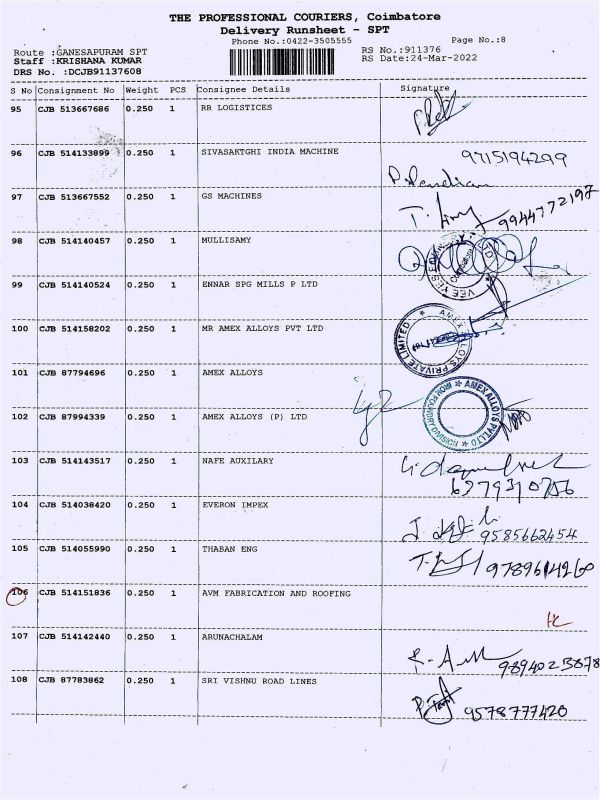 THE PROFESSIONAL COURIERS, Coimbatore
Delivery Runsheet - SPT
Phone No.:0422-3505555
Page No.:8
Route :GANESAPURAM SPT
RS No.:911376
Staff :KRISHANA KUMAR
RS Date:24-Mar-2022
DRS No. :DCJB91137608
S No Consignment No Weight PCS Consignee Details Signature
95 CJB 513667686 0.250 1 RR LOGISTICES
96 CJB 514133899 0.250 1 SIVASAKTGHI INDIA MACHINE 9715194299
P. Pandian
97 CJB 513667552 0.250 1 GS MACHINES
9944772197
98 CJB 514140457 0.250 1 MULLISAMY
99 CJB 514140524 0.250 1 ENNAR SPG MILLS P LTD
100 CJB 514158202 0.250 1 MR AMEX ALLOYS PVT LTD
AMEX ALLOYS PRIVATE LIMITED
101 CJB 87794696 0.250 1 AMEX ALLOYS
102 CJB 87994339 0.250 1 AMEX ALLOYS (P) LTD
AMEX ALLOYS PVT LTD
103 CJB 514143517 0.250 1 NAFE AUXILARY
6379310756
104 CJB 514038420 0.250 1 EVERON IMPEX
9585662454
105 CJB 514055990 0.250 1 THABAN ENG
9789614260
106 CJB 514151836 0.250 1 AVM FABRICATION AND ROOFING
107 CJB 514142440 0.250 1 ARUNACHALAM
9894023878
108 CJB 87783862 0.250 1 SRI VISHNU ROAD LINES
9578777420